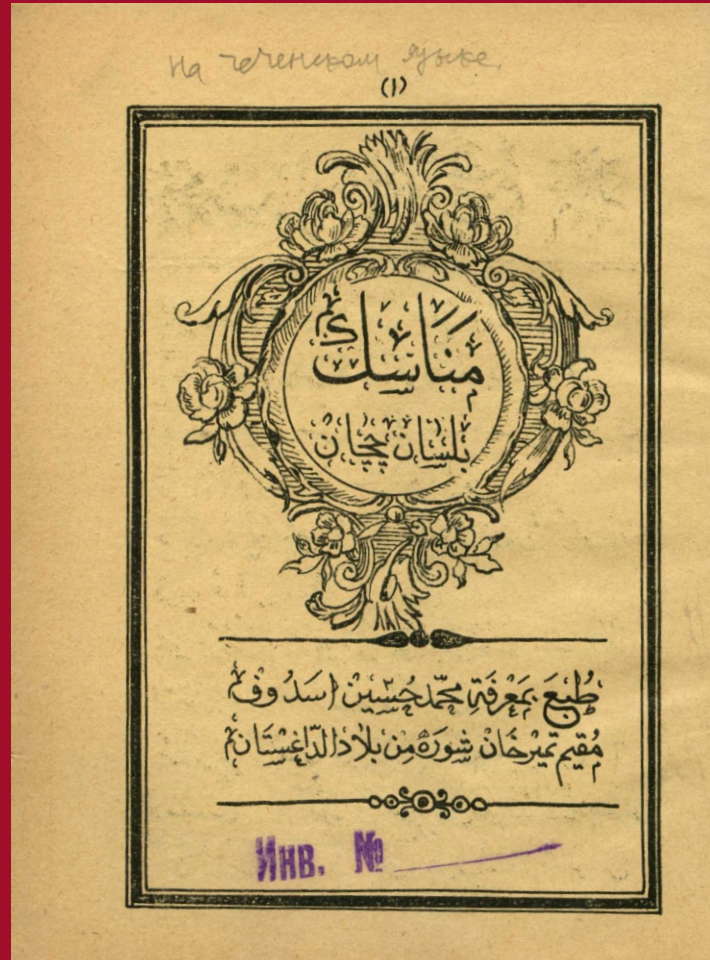 на чеченском языке
(١)
مَنَاسِك
بِلِسَانِ چَچَانْ
طُبِعَ بِمَعْرِفَةِ مُحَمَّد حُسَيْن اَسَدُوف
مُقِيمِ تَمِيرْخَانْ شُورَهْ مِنْ بِلَادِ الدَّاغِسْتَانْ
Инв. №